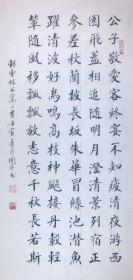 公子敬愛客終宴不知疲清夜遊西
園飛蓋相追隨明月澄清景列宿正
參差秋蘭被長坂朱華冒綠池潛魚
躍清波好鳥鳴高枝神飈接丹轂輕
輦隨風移飄颻放志意千秋長若斯